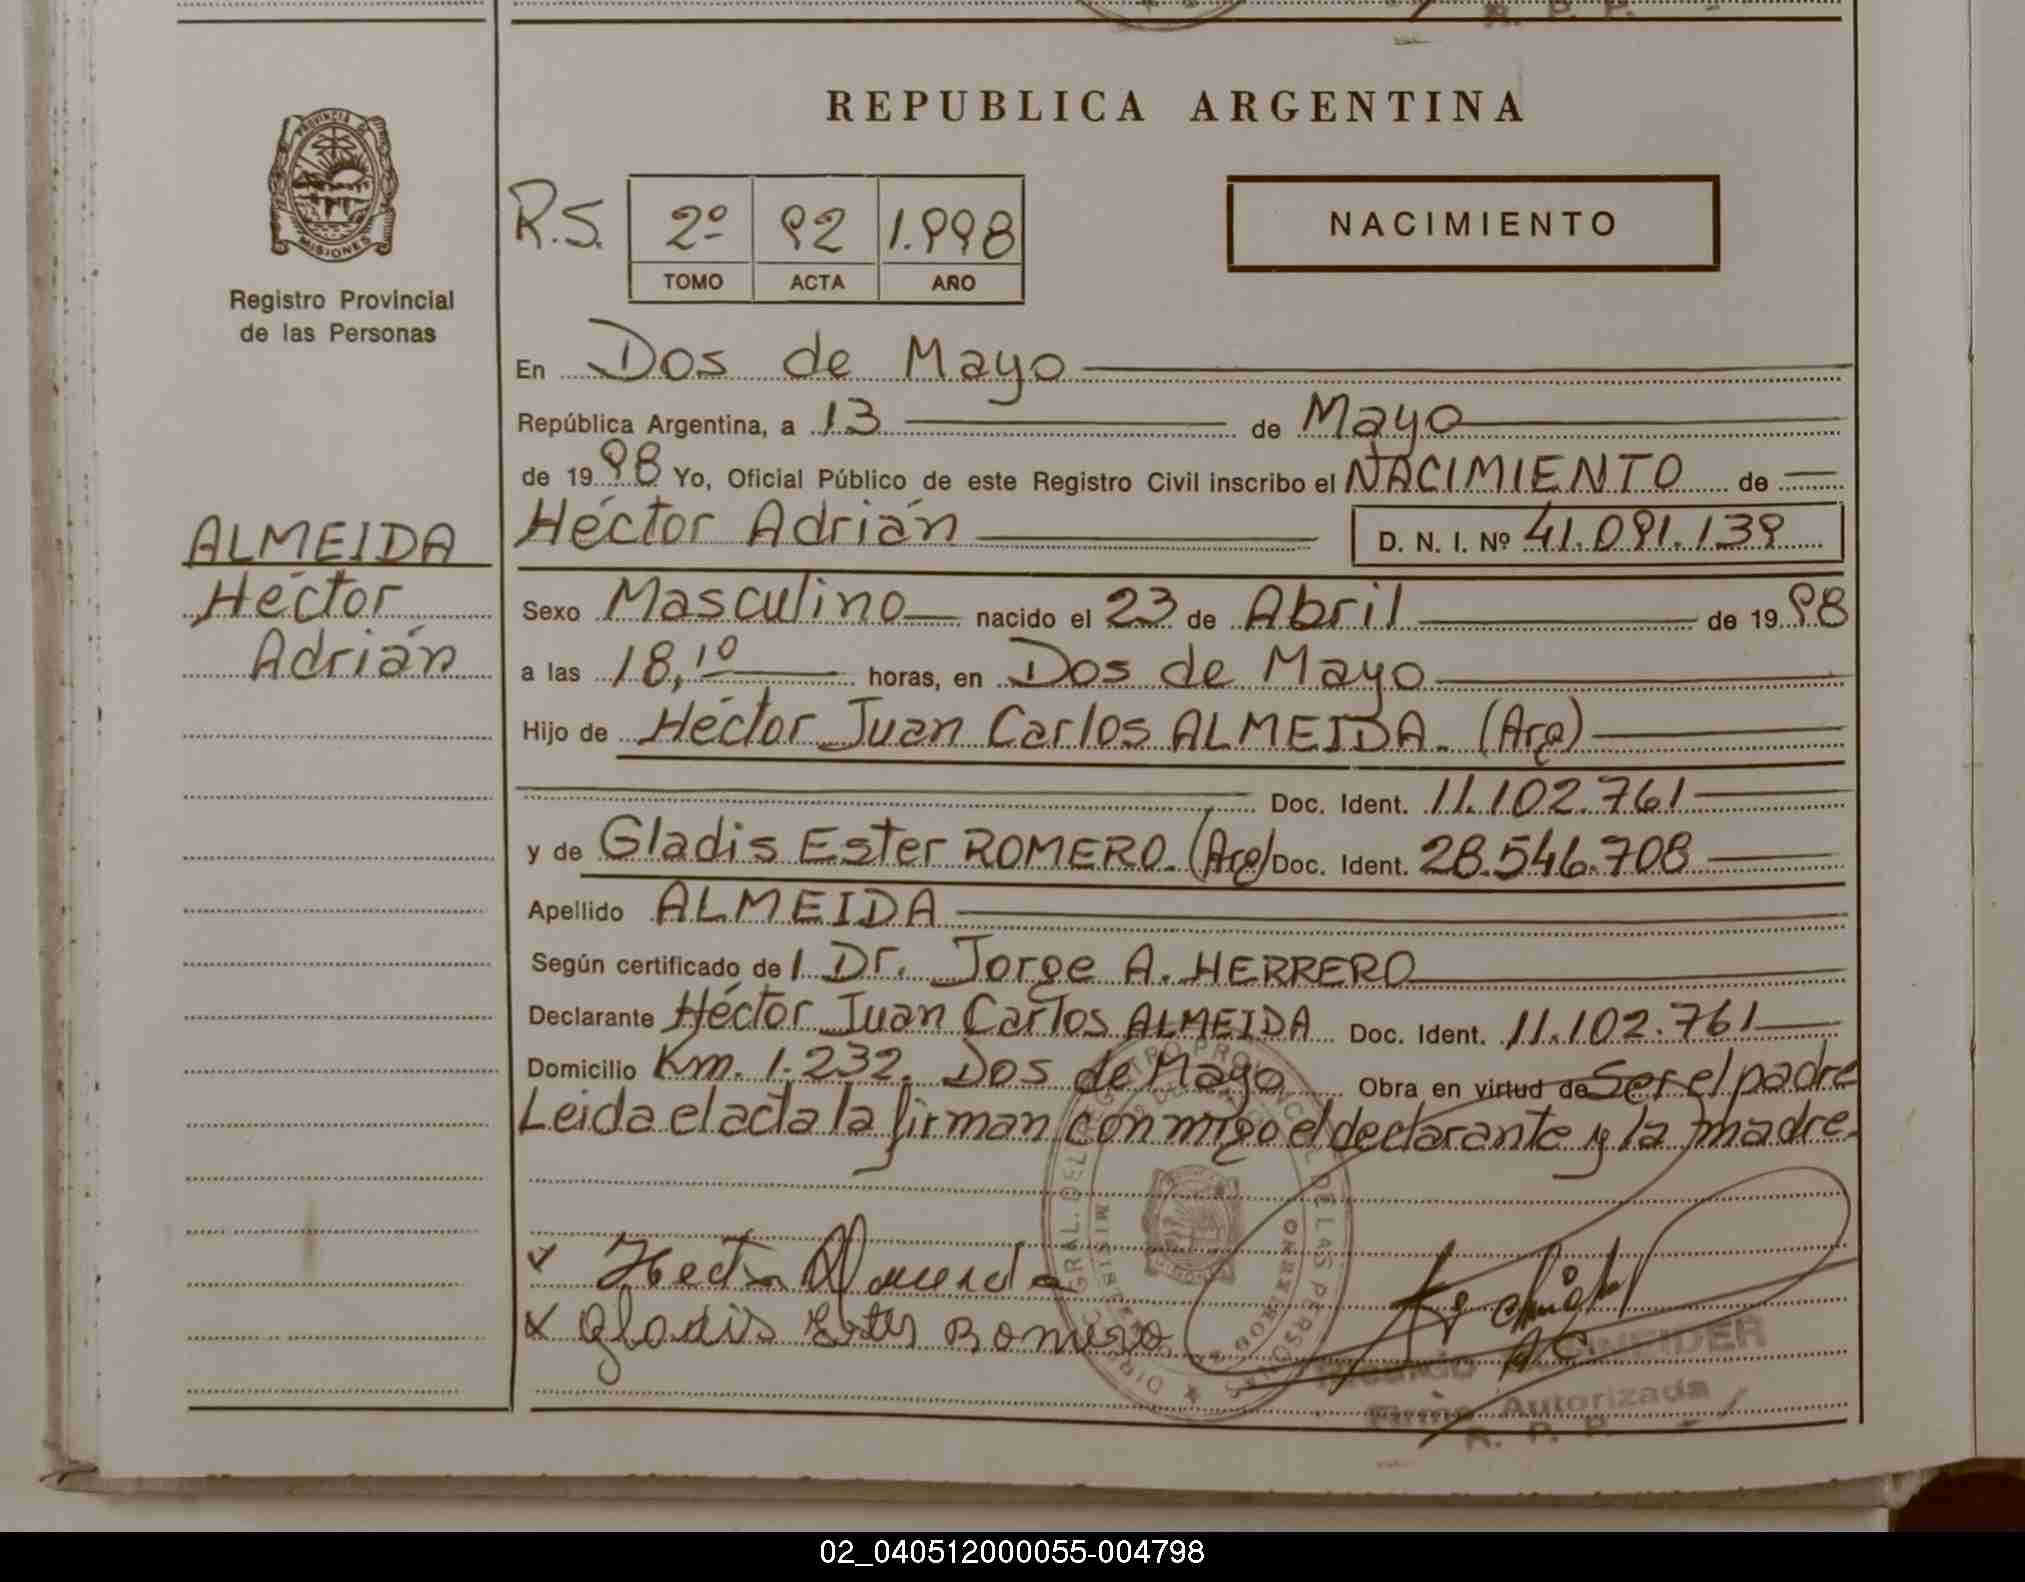 REPUBLICA ARGENTINA
PROVINCIA DE
MISIONES
Registro Provincial
de las Personas
R.S. 2º 92 1.998
TOMO ACTA AÑO
NACIMIENTO
En Dos de Mayo
República Argentina, a 13 de Mayo
de 1998 Yo, Oficial Público de este Registro Civil inscribo el NACIMIENTO de
ALMEIDA
Héctor
Adrián
Héctor Adrián D. N. I. Nº 41.091.139
Sexo Masculino nacido el 23 de Abril de 1998
a las 18,10 horas, en Dos de Mayo
Hijo de Héctor Juan Carlos ALMEIDA. (Arg)
Doc. Ident. 11.102.761
y de Gladis Ester ROMERO. (Arg) Doc. Ident. 28.546.708
Apellido ALMEIDA
Según certificado de l Dr. Jorge A. HERRERO
Declarante Héctor Juan Carlos ALMEIDA Doc. Ident. 11.102.761
Domicilio Km. 1.232. Dos de Mayo Obra en virtud de Ser el padre
Leida el acta la firman conmigo el declarante y la madre.
Hector Almeida
Gladis Ester Romero
Firma Autorizada
R. P. P.
02_040512000055-004798